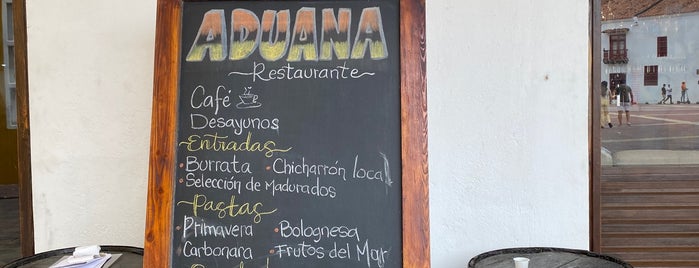 ADUANA
Restaurante
Café
Desayunos
Entradas
• Burrata • Chicharrón local
• Selección de Madurados
Pastas
• Primavera • Bolognesa
Carbonara • Frutos del Mar